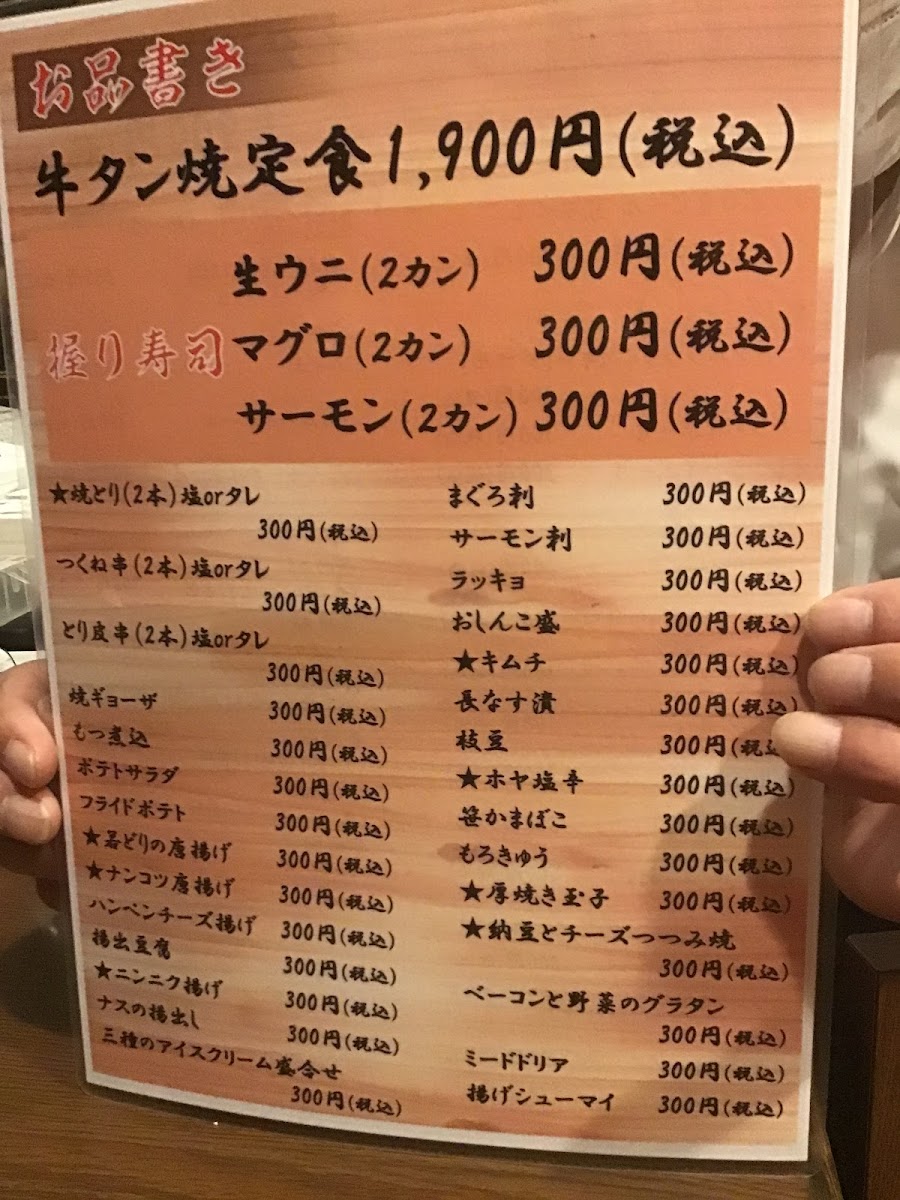 お品書き
牛タン焼定食1,900円(税込)
握り寿司
生ウニ(2カン) 300円(税込)
マグロ(2カン) 300円(税込)
サーモン(2カン) 300円(税込)
★焼とり(2本)塩orタレ
300円(税込)
つくね串(2本)塩orタレ
300円(税込)
とり皮串(2本)塩orタレ
300円(税込)
焼ギョーザ 300円(税込)
もつ煮込 300円(税込)
ポテトサラダ 300円(税込)
フライドポテト 300円(税込)
★若どりの唐揚げ 300円(税込)
★ナンコツ唐揚げ 300円(税込)
ハンペンチーズ揚げ 300円(税込)
揚出豆腐 300円(税込)
★ニンニク揚げ 300円(税込)
ナスの揚出し 300円(税込)
三種のアイスクリーム盛合せ
300円(税込)
まぐろ刺 300円(税込)
サーモン刺 300円(税込)
ラッキョ 300円(税込)
おしんこ盛 300円(税込)
★キムチ 300円(税込)
長なす漬 300円(税込)
枝豆 300円(税込)
★ホヤ塩辛 300円(税込)
笹かまぼこ 300円(税込)
もろきゅう 300円(税込)
★厚焼き玉子 300円(税込)
★納豆とチーズつつみ焼
300円(税込)
ベーコンと野菜のグラタン
300円(税込)
ミードドリア 300円(税込)
揚げシューマイ 300円(税込)